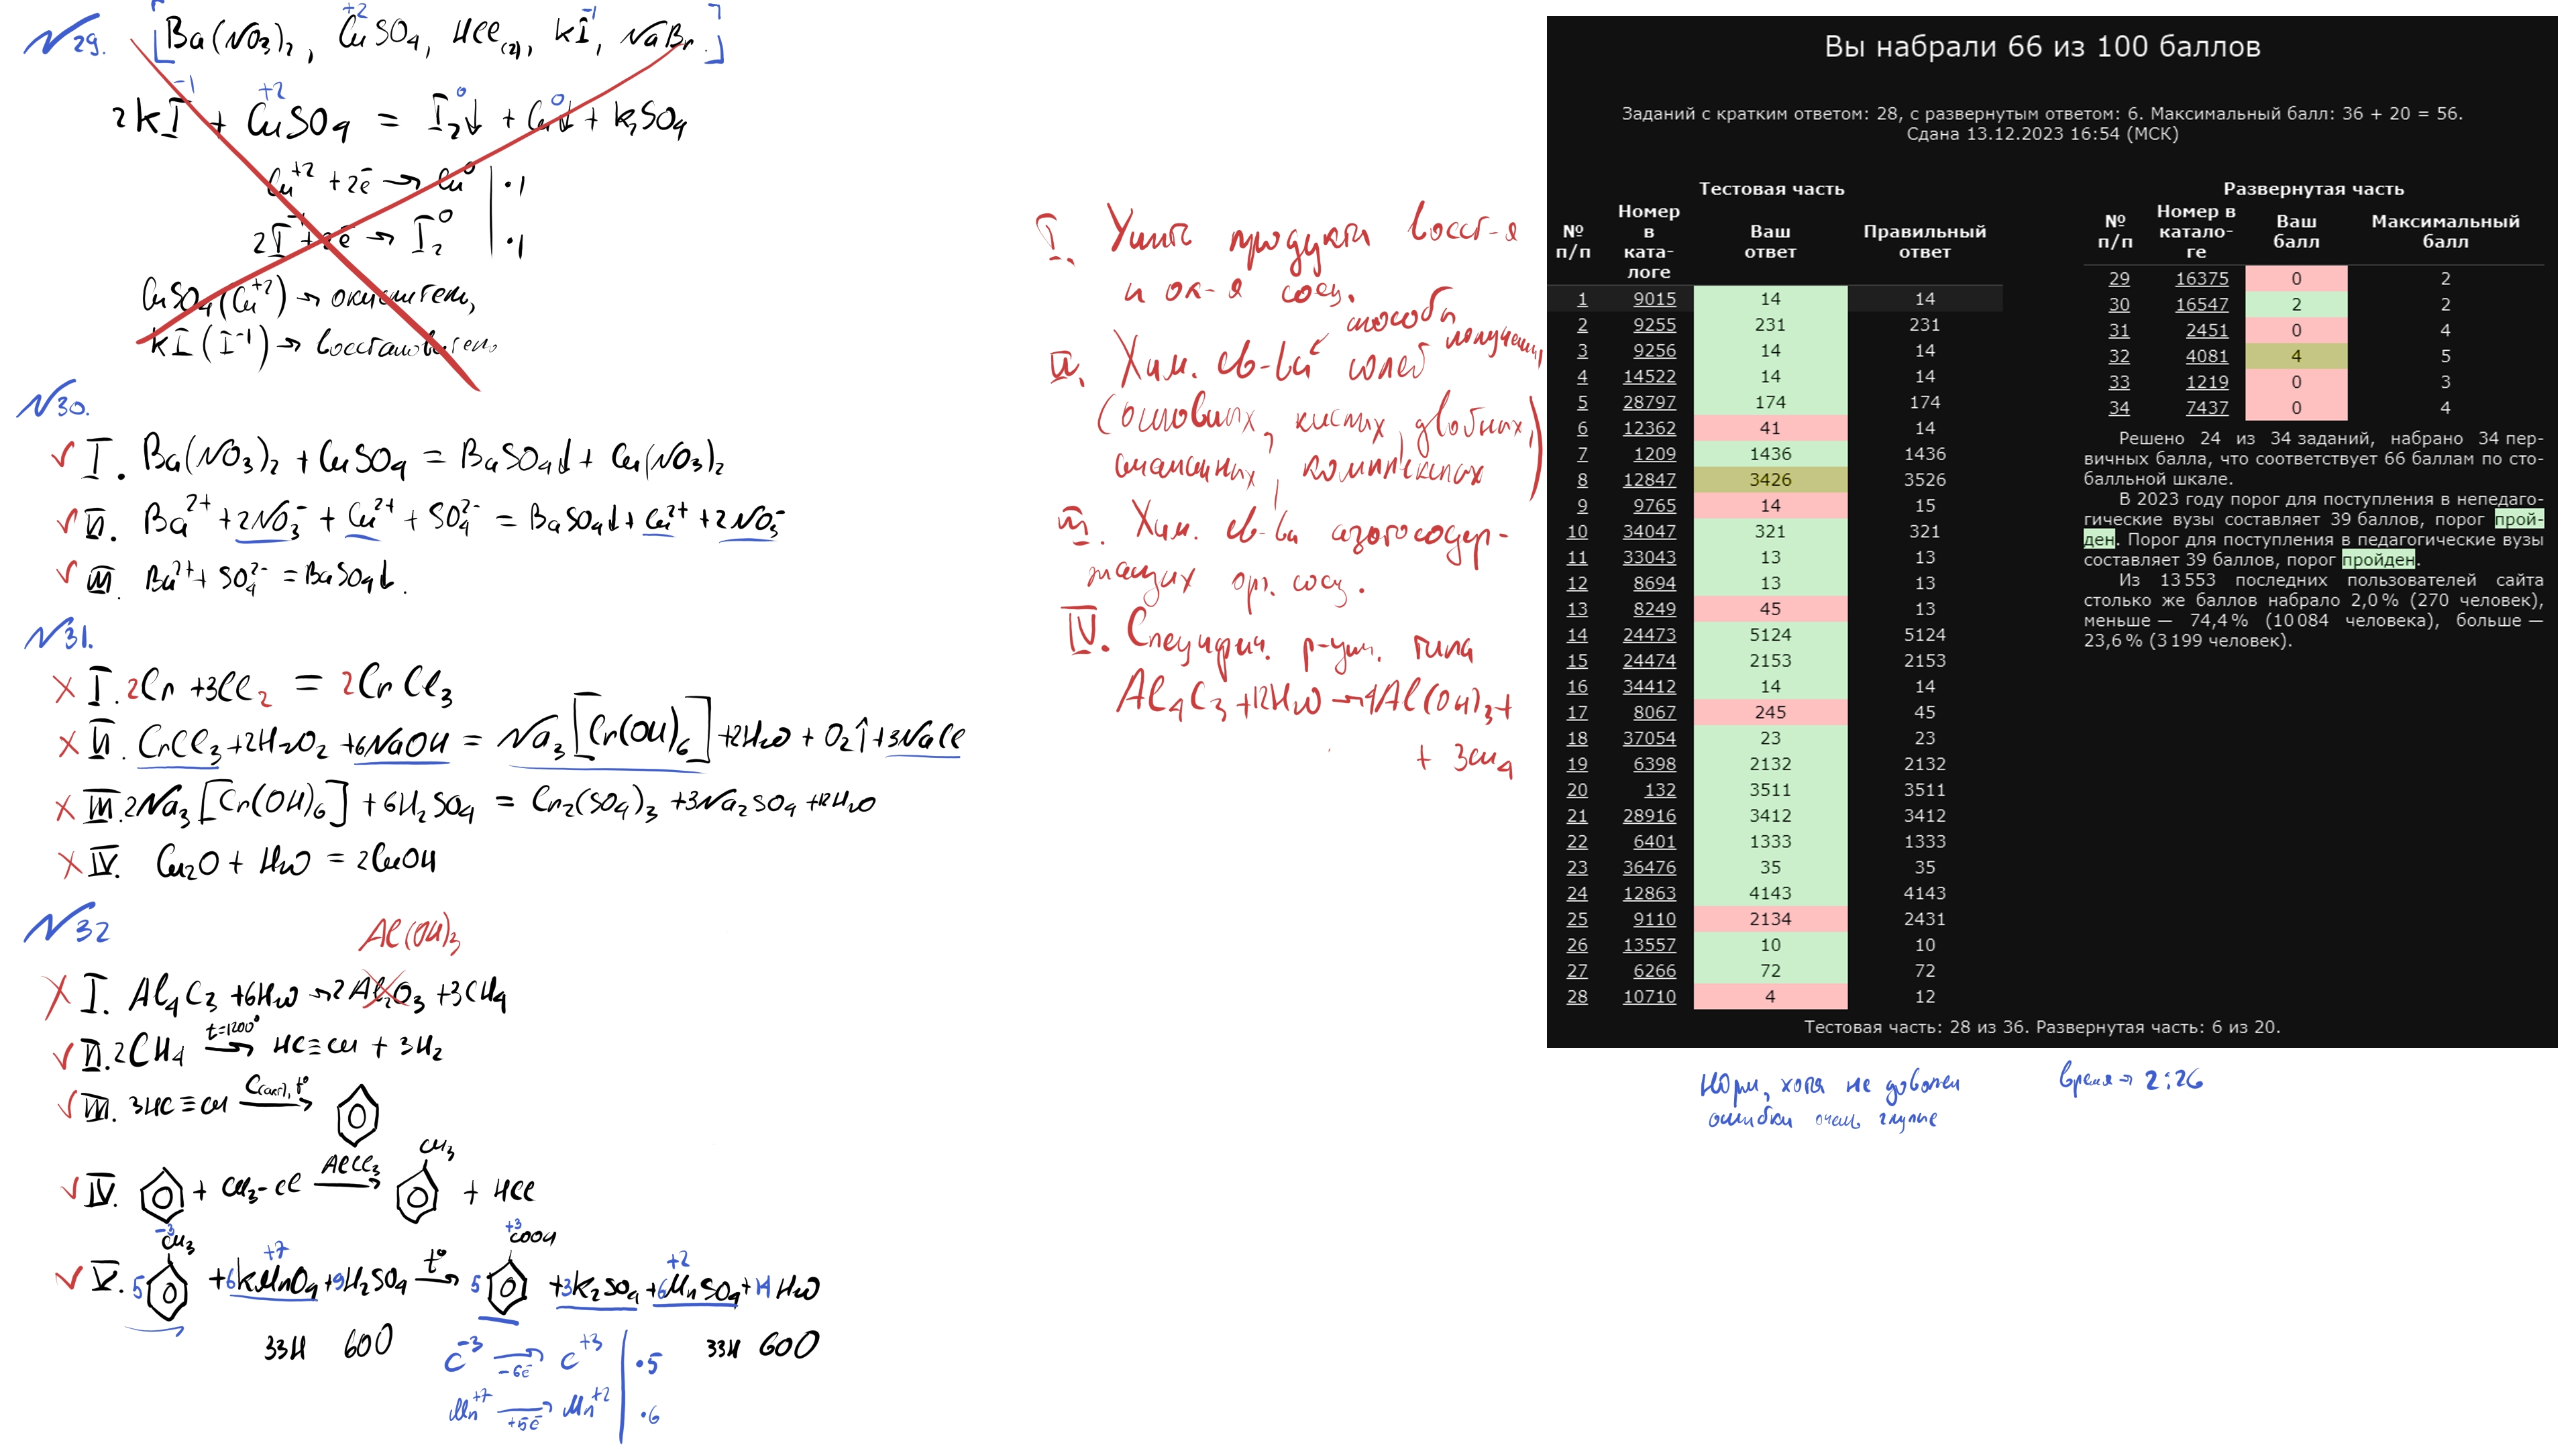 N29. [Ba(NO3)2, Cu+2SO4, HCl(г), KI-1, NaBr.]
2KI-1 + Cu+2SO4 = I20↓ + Cu0↓ + K2SO4
Cu+2 + 2ē → Cu0 | ·1
2I- + 2ē → I20 | ·1
CuSO4(Cu+2) → окислитель,
KI(I-1) → восстановитель
N30.
✓ I. Ba(NO3)2 + CuSO4 = BaSO4↓ + Cu(NO3)2
✓ II. Ba2+ + 2NO3- + Cu2+ + SO42- = BaSO4↓ + Cu2+ + 2NO3-
✓ III. Ba2+ + SO42- = BaSO4↓.
N31.
× I. 2Cr + 3Cl2 = 2CrCl3
× II. CrCl3 + 2H2O2 + 6NaOH = Na3[Cr(OH)6] + 2H2O + O2↑ + 3NaCl
× III. 2Na3[Cr(OH)6] + 6H2SO4 = Cr2(SO4)3 + 3Na2SO4 + 12H2O
× IV. Cu2O + H2O = 2CuOH
N32
Al(OH)3
× I. Al4C3 + 6H2O → 2Al2O3 + 3CH4
✓ II. 2CH4 t=1200° → HC≡CH + 3H2
✓ III. 3HC≡CH C(акт), t° →
CH3
✓ IV. + CH3-Cl AlCl3 → + HCl
-3 CH3 +3 COOH
✓ V. 5 + 6K+7MnO4 + 9H2SO4 t° → 5 + 3K2SO4 + 6Mn+2SO4 + 14H2O
33H 60O 33H 60O
C-3 -6ē → C+3 | ·5
Mn+7 +5ē → Mn+2 | ·6
I. Учить продукты восст-я
и ок-я соед.
способы получения
II. Хим. св-ва солей
(основных, кислых, двойных,
смешанных, комплексных)
III. Хим. св-ва азотосодер-
жащих орг. соед.
IV. Специфич. р-ции. типа
Al4C3 + 12H2O → 4Al(OH)3 +
+ 3CH4
Вы набрали 66 из 100 баллов
Заданий с кратким ответом: 28, с развернутым ответом: 6. Максимальный балл: 36 + 20 = 56.
Сдана 13.12.2023 16:54 (МСК)
Тестовая часть
№ п/п Номер в ката-логе Ваш ответ Правильный ответ
1 9015 14 14
2 9255 231 231
3 9256 14 14
4 14522 14 14
5 28797 174 174
6 12362 41 14
7 1209 1436 1436
8 12847 3426 3526
9 9765 14 15
10 34047 321 321
11 33043 13 13
12 8694 13 13
13 8249 45 13
14 24473 5124 5124
15 24474 2153 2153
16 34412 14 14
17 8067 245 45
18 37054 23 23
19 6398 2132 2132
20 132 3511 3511
21 28916 3412 3412
22 6401 1333 1333
23 36476 35 35
24 12863 4143 4143
25 9110 2134 2431
26 13557 10 10
27 6266 72 72
28 10710 4 12
Развернутая часть
№ п/п Номер в катало-ге Ваш балл Максимальный балл
29 16375 0 2
30 16547 2 2
31 2451 0 4
32 4081 4 5
33 1219 0 3
34 7437 0 4
Решено 24 из 34 заданий, набрано 34 пер-
вичных балла, что соответствует 66 баллам по сто-
балльной шкале.
В 2023 году порог для поступления в непедаго-
гические вузы составляет 39 баллов, порог прой-
ден. Порог для поступления в педагогические вузы
составляет 39 баллов, порог пройден.
Из 13 553 последних пользователей сайта
столько же баллов набрало 2,0 % (270 человек),
меньше — 74,4 % (10 084 человека), больше —
23,6 % (3 199 человек).
Тестовая часть: 28 из 36. Развернутая часть: 6 из 20.
Норм, хотя не доволен
ошибки очень глупые
время → 2:26